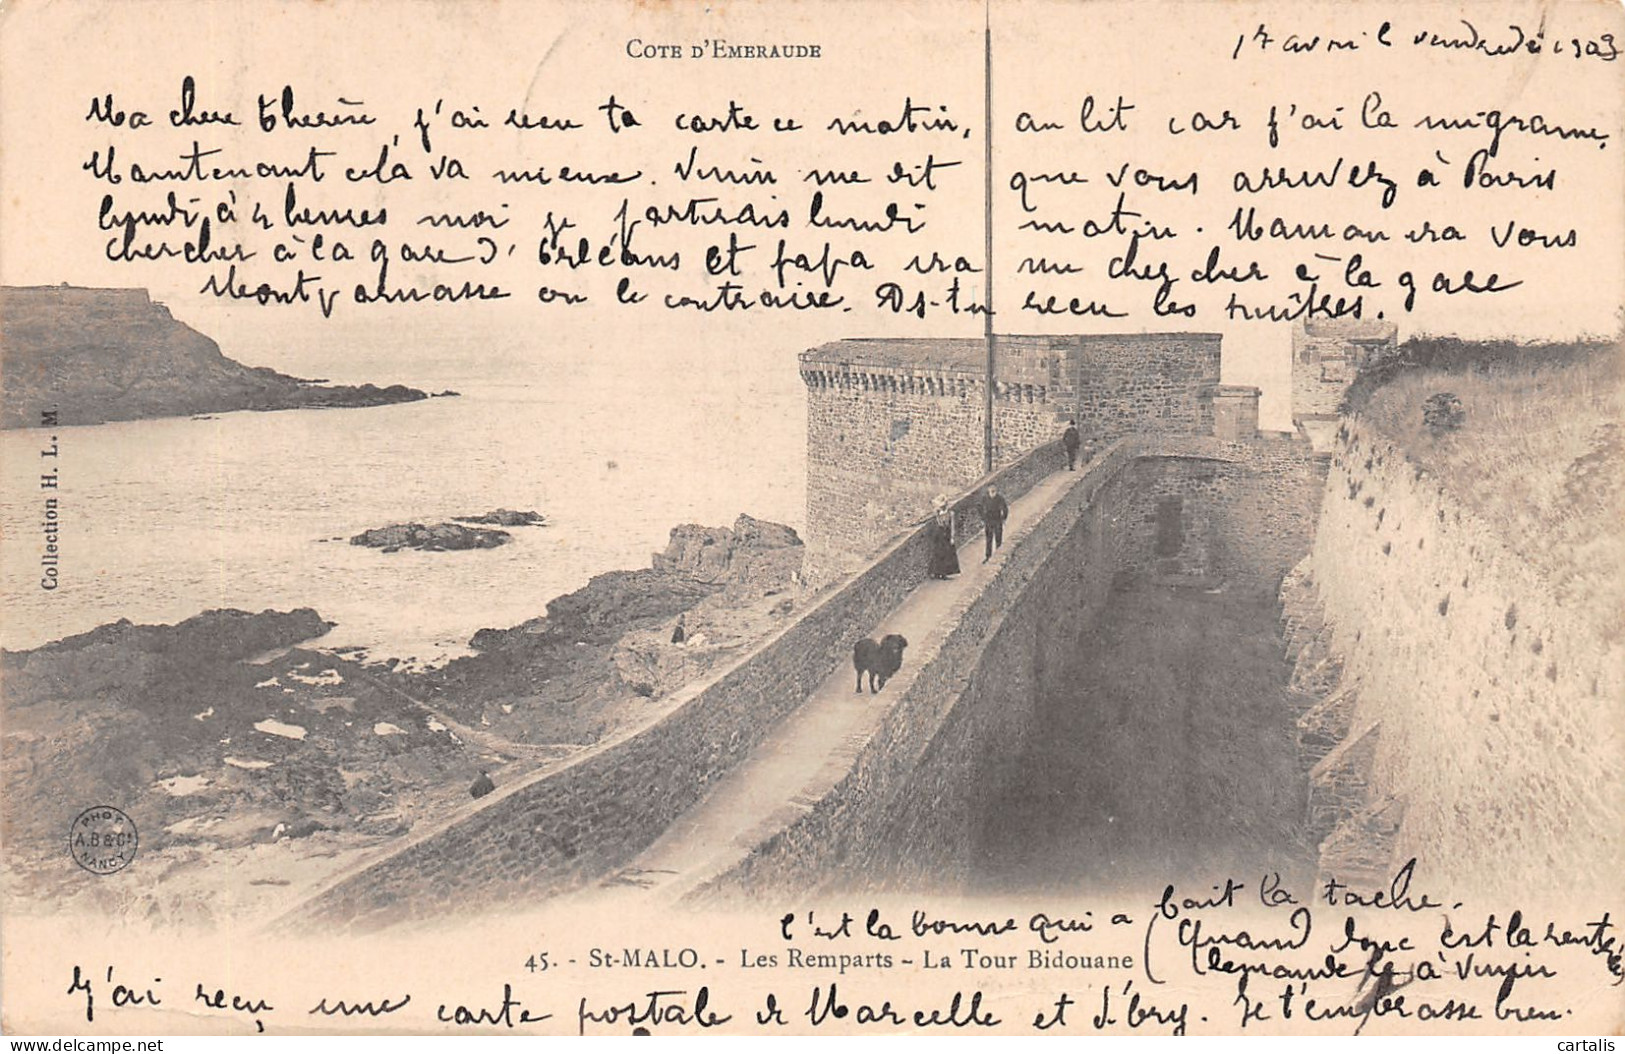 COTE D'EMERAUDE
17 avril vendredi 1903
Ma chere Therèse, j'ai recu ta carte ce matin, au lit car j'ai la migraine,
Maintenant cela va mieux. Ninin me dit que vous arrivez à Paris
lundi à 2 heures moi je partirais lundi matin. Maman ira vous
chercher à la gare d'Orléans et papa ira me chercher à la gare
Montparnasse ou le contraire. As-tu recu les huîtres.
Collection H. L. M.
PHOT.
A.B & Cie
NANCY
c'est la bonne qui a fait la tache.
(Quand donc est la rentrée
demande le à Ninin
45. - St-MALO. - Les Remparts - La Tour Bidouane
J'ai reçu une carte postale de Marcelle et d'. Je t'embrasse bien.
cartalis
delcampe.net